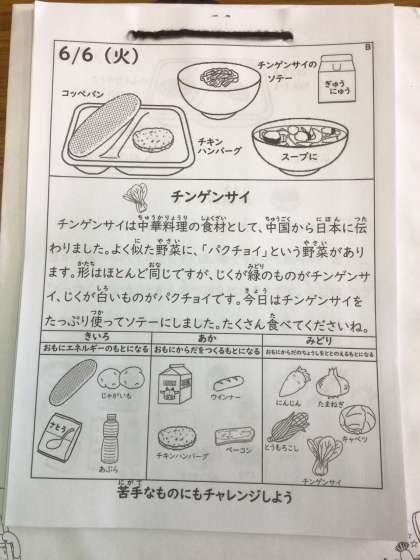 B
6/6（火）
チンゲンサイの
ソテー
ぎゅう
にゅう
コッペパン
チキン
ハンバーグ
スープに
チンゲンサイ
チンゲンサイは中華料理の食材として、中国から日本に伝
わりました。よく似た野菜に、「パクチョイ」という野菜があり
ます。形はほとんど同じですが、じくが緑のものがチンゲンサ
イ、じくが白いものがパクチョイです。今日はチンゲンサイを
たっぷり使ってソテーにしました。たくさん食べてくださいね。
きいろ
おもにエネルギーのもとになる
あか
おもにからだをつくるもとになる
みどり
おもにからだのちょうしをととのえるもとになる
じゃがいも
さとう
あぶら
ウインナー
チキンハンバーグ
ベーコン
にんじん
たまねぎ
キャベツ
とうもろこし
チンゲンサイ
苦手なものにもチャレンジしよう